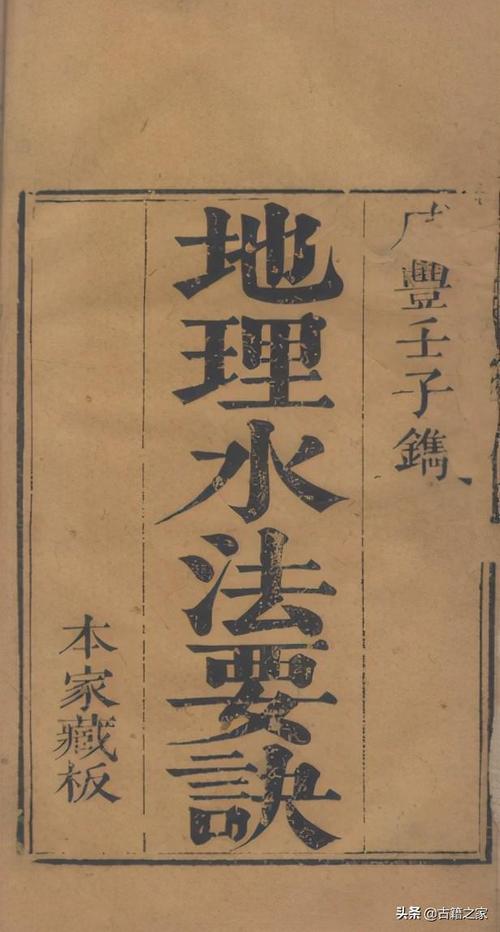 咸豐壬子鐫
地理水法要訣
本家藏板
头条 @古籍之家